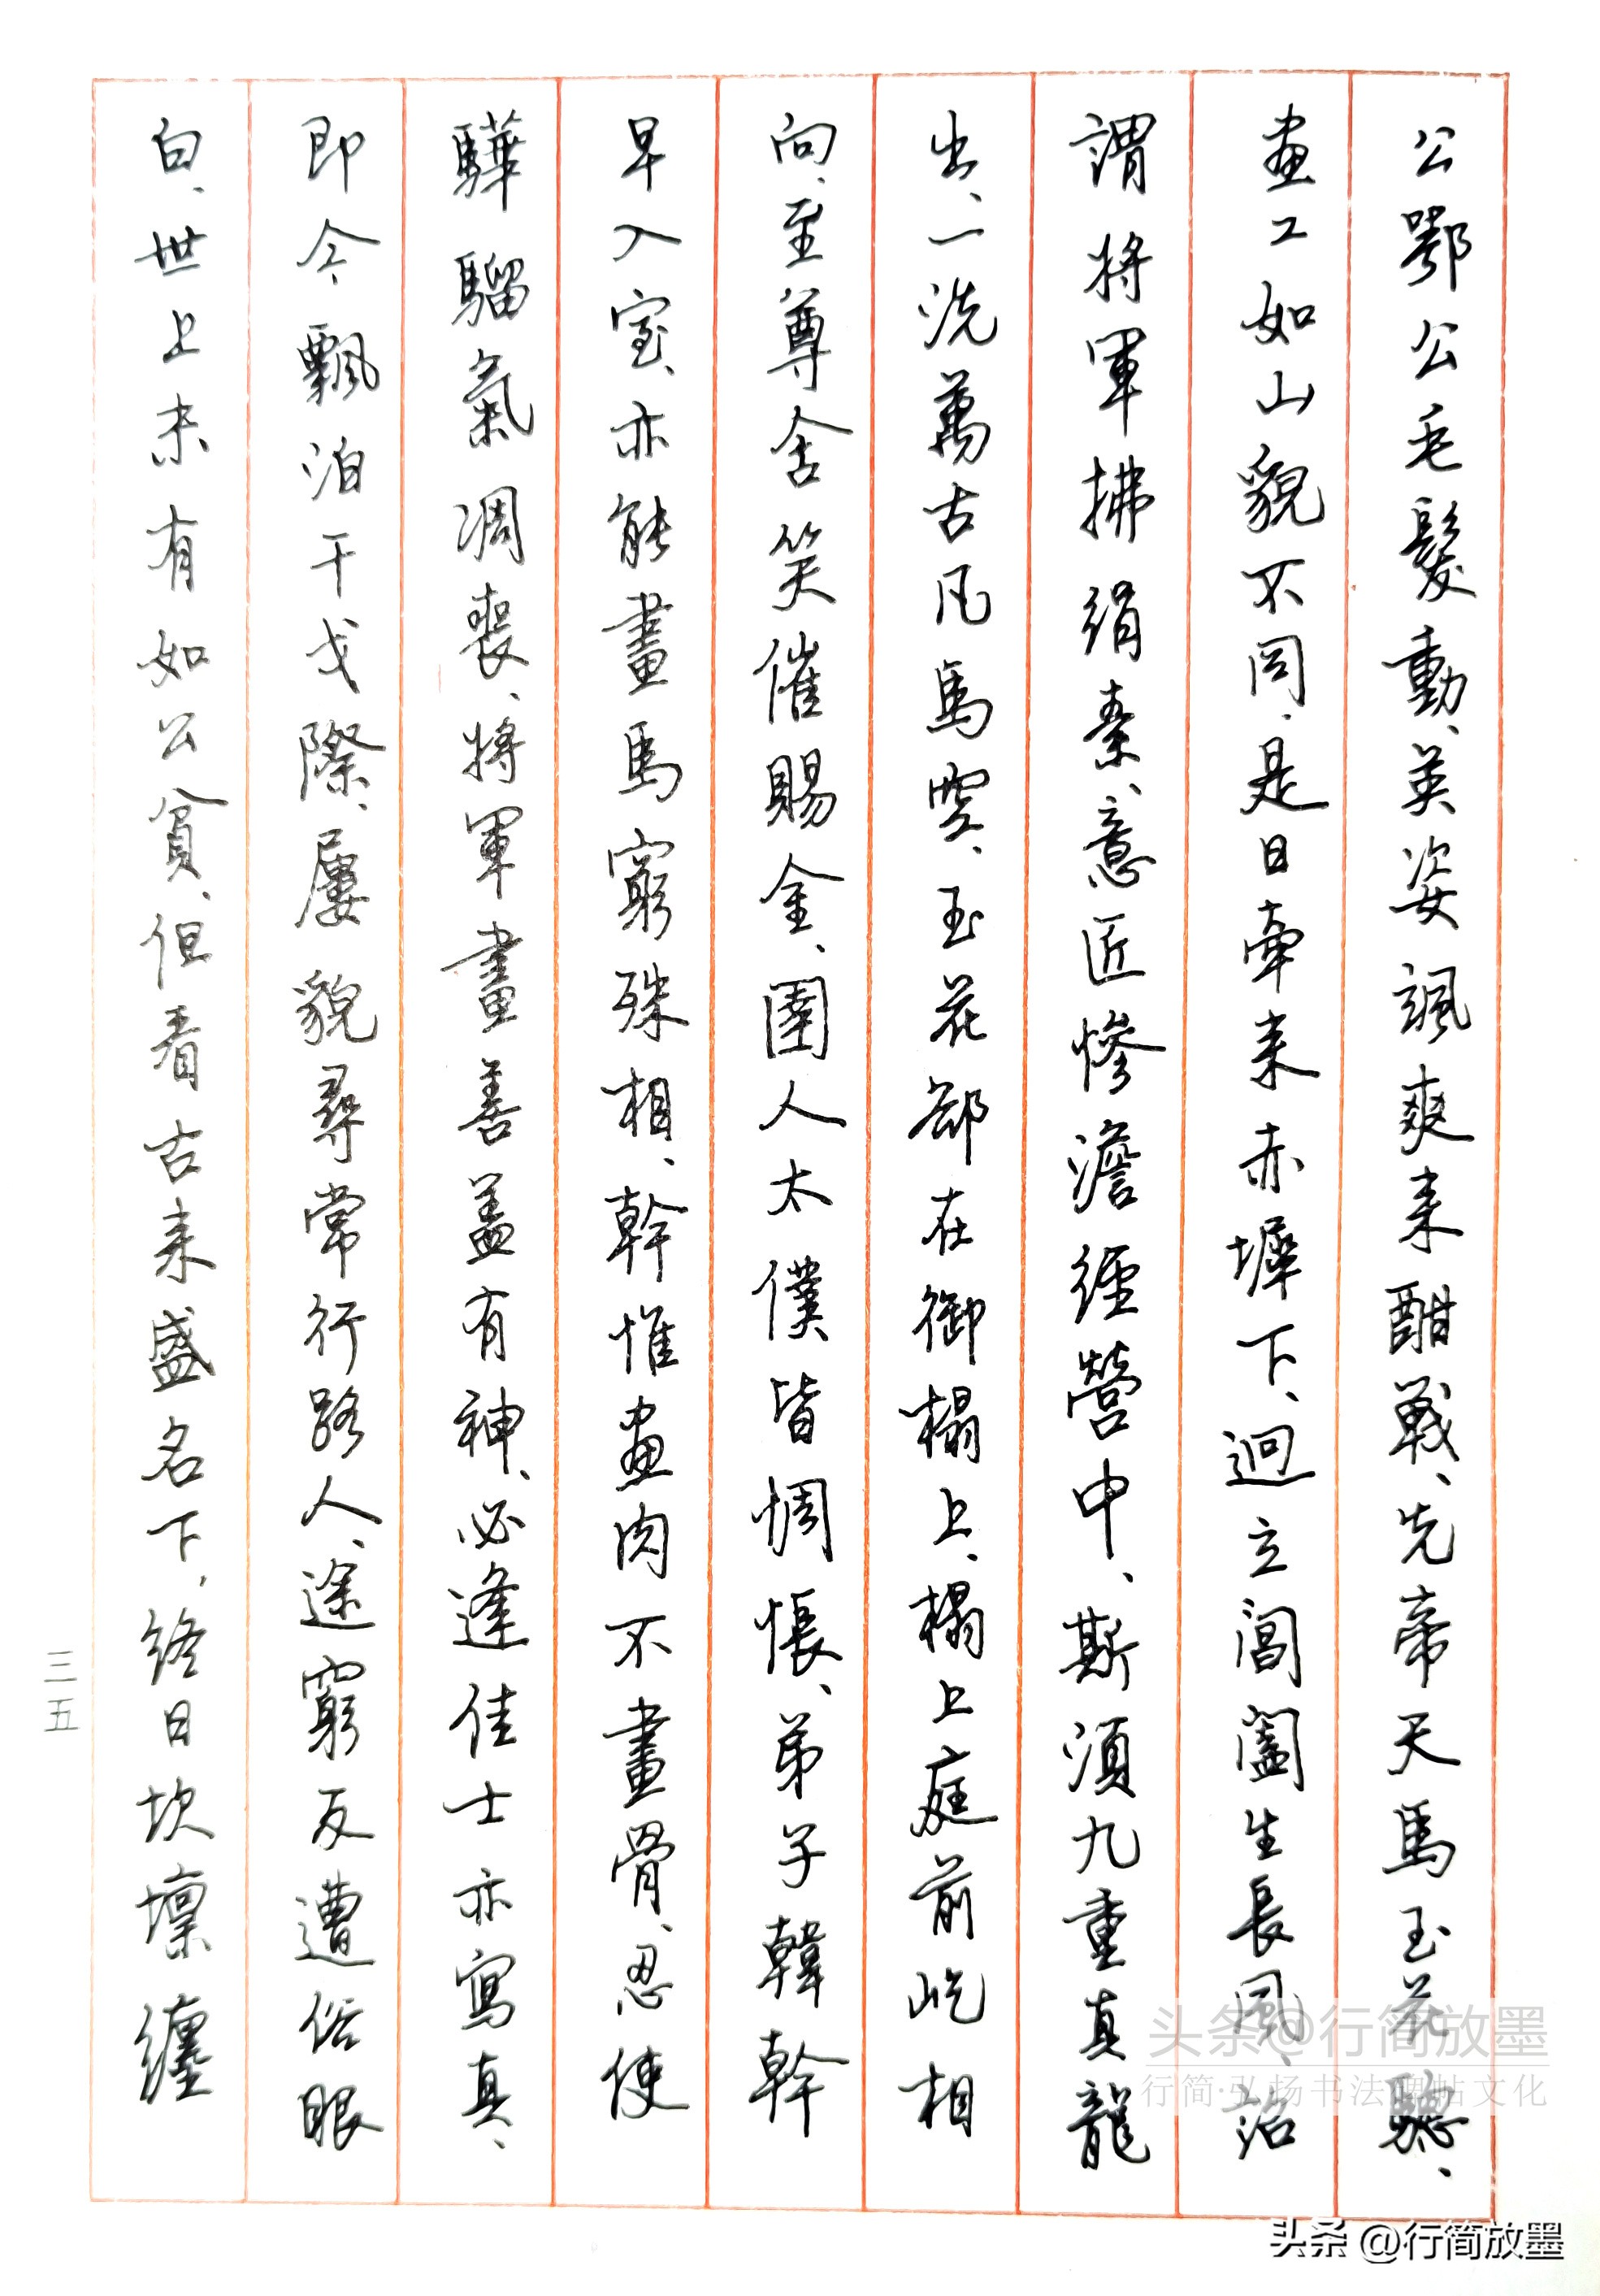 公鄂公毛髮動、英姿颯爽来酣戰、先帝天馬玉花驄、
画工如山貌不同、是日牽来赤墀下、迥立閶闔生長風、詔
謂将軍拂絹素、意匠慘澹經營中、斯須九重真龍
出、一洗萬古凡馬空、玉花却在御榻上、榻上庭前屹相
向、至尊含笑催賜金、圉人太僕皆惆悵、弟子韓幹
早入室、亦能畫馬窮殊相、幹惟画肉不畫骨、忍使
驊騮氣凋喪、将軍畫善盖有神、必逢佳士亦寫真、
即今飄泊干戈際、屢貌尋常行路人、途窮反遭俗眼
白、世上未有如公貧、但看古来盛名下、終日坎壈纏
三五
头条@行简放墨
行简·弘扬书法碑帖文化
头条 @行简放墨